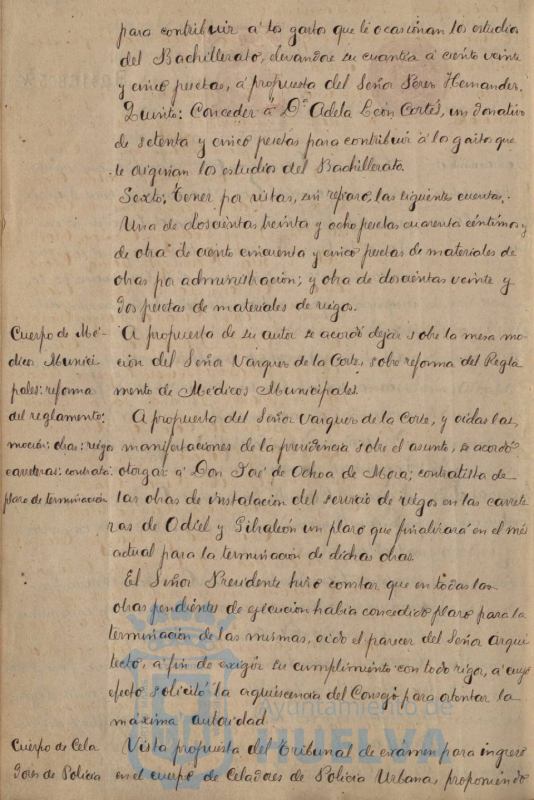 para contribuir á los gastos que le ocasionan los estudios
del Bachillerato, elevandose su cuantía á ciento veinte
y cinco pesetas, á propuesta del Señor Perez Hernandez.
Quinto: Conceder á Dª Adela León Cortés, un donativo
de setenta y cinco pesetas para contribuir á los gastos que
le originan los estudios del Bachillerato.
Sexto; Tener por vistas, sin reparos, las siguientes cuentas.
Una de doscientas treinta y ocho pesetas cuarenta céntimos y
de otra de ciento cincuenta y cinco pesetas de materiales de
obras por administración; y otra de doscientas veinte y
dos pesetas de materiales de riegos.
Cuerpo de Mé-
dicos Munici-
pales: reforma
del reglamento:
A propuesta de su autor se acordó dejar sobre la mesa mo-
ción del Señor Vazquez de la Corte, sobre reforma del Regla
mento de Medicos Municipales.
moción: obras: riegos
carreteras: contrata:
plazo de terminación
A propuesta del Señor Vazquez de la Corte, y oidas las
manifestaciones de la presidencia sobre el asunto, se acordó
otorgar á Don José de Ochoa de Mora; contratista de
las obras de instalación del servicio de riegos en las carrete
ras de Odiel y Gibraleón un plazo que finalizará en el mes
actual para la terminación de dichas obras.
El Señor Presidente hizo constar que en todas las
obras pendientes de ejecución había concedido plazo para la
terminación de las mismas, oido el parecer del Señor Arqui
tecto, á fin de exigir su cumplimiento con todo rigor, á cuyo
efecto solicitó la aquiescencia del Consejo para ostentar la
máxima autoridad
Cuerpo de Cela
dores de Policia
Vista propuesta del tribunal de examen para ingreso
en el cuerpo de Celadores de Policia Urbana, proponiendo
Ayuntamiento de
HUELVA